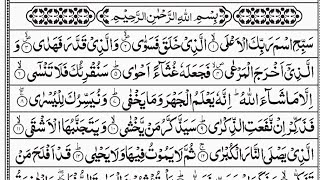 بِسْمِ اللهِ الرَّحْمٰنِ الرَّحِيْمِ
سَبِّحِ اسْمَ رَبِّكَ الْاَعْلَى ۙ الَّذِيْ خَلَقَ فَسَوّٰى ۙ وَالَّذِيْ قَدَّرَ فَهَدٰى ۙ وَ
الَّذِيْٓ اَخْرَجَ الْمَرْعٰى ۙ فَجَعَلَهٗ غُثَآءً اَحْوٰى ۙ سَنُقْرِئُكَ فَلَا تَنْسٰٓى ۙ
اِلَّا مَا شَآءَ اللهُ ؕ اِنَّهٗ يَعْلَمُ الْجَهْرَ وَمَا يَخْفٰى ۙ وَنُيَسِّرُكَ لِلْيُسْرٰى ۙ
فَذَكِّرْ اِنْ نَّفَعَتِ الذِّكْرٰى ۙ سَيَذَّكَّرُ مَنْ يَّخْشٰى ۙ وَيَتَجَنَّبُهَا الْاَشْقَى ۙ
الَّذِيْ يَصْلَى النَّارَ الْكُبْرٰى ۙ ثُمَّ لَا يَمُوْتُ فِيْهَا وَلَا يَحْيٰى ۙ قَدْ اَفْلَحَ مَنْ